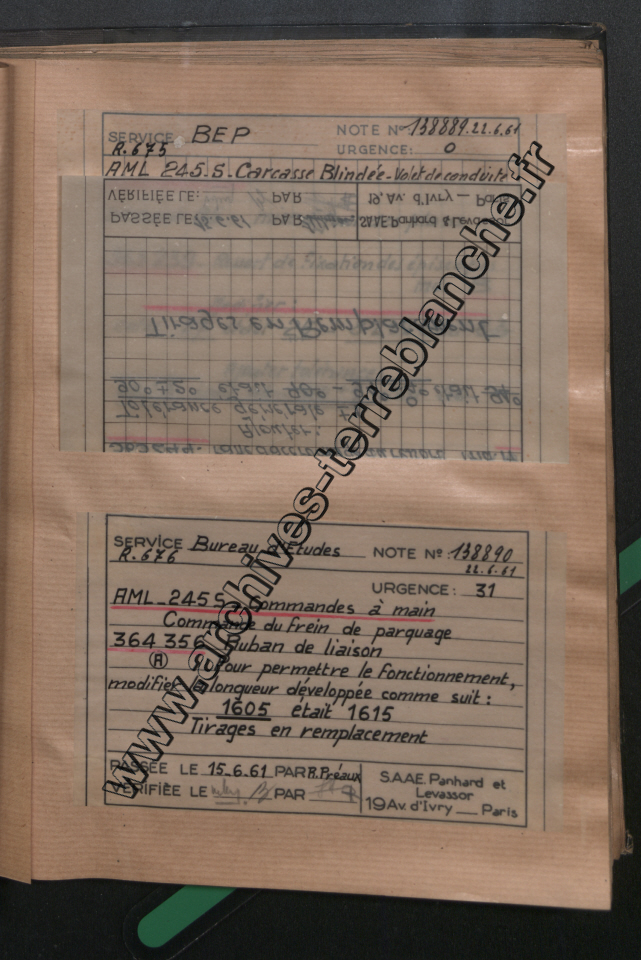 SERVICE BEP NOTE Nº 138889. 22.6.61
R.675 URGENCE: 0
AML 245-S-Carcasse Blindée-Volet de conduite
VÉRIFIÉE LE: PAR 19, Av. d'Ivry — Paris
PASSÉE LE 15.6.61 PAR S.A.A.E. Panhard & Levassor
Tirages en Remplacement
90°±2° était 90°
Tolérance générale
Ajouter:
SERVICE Bureau d'Etudes NOTE Nº: 138890
R.676 22.6.61
URGENCE: 31
AML-245 S-Commandes à main
Commande du frein de parquage
364 356 Ruban de liaison
Pour permettre le fonctionnement,
modifier la longueur développée comme suit:
1605 était 1615
Tirages en remplacement
PASSÉE LE 15.6.61 PAR R. Préaux S.A.A.E. Panhard et
Levassor
VÉRIFIÉE LE PAR 19 Av. d'Ivry — Paris
www.archives-terreblanche.fr